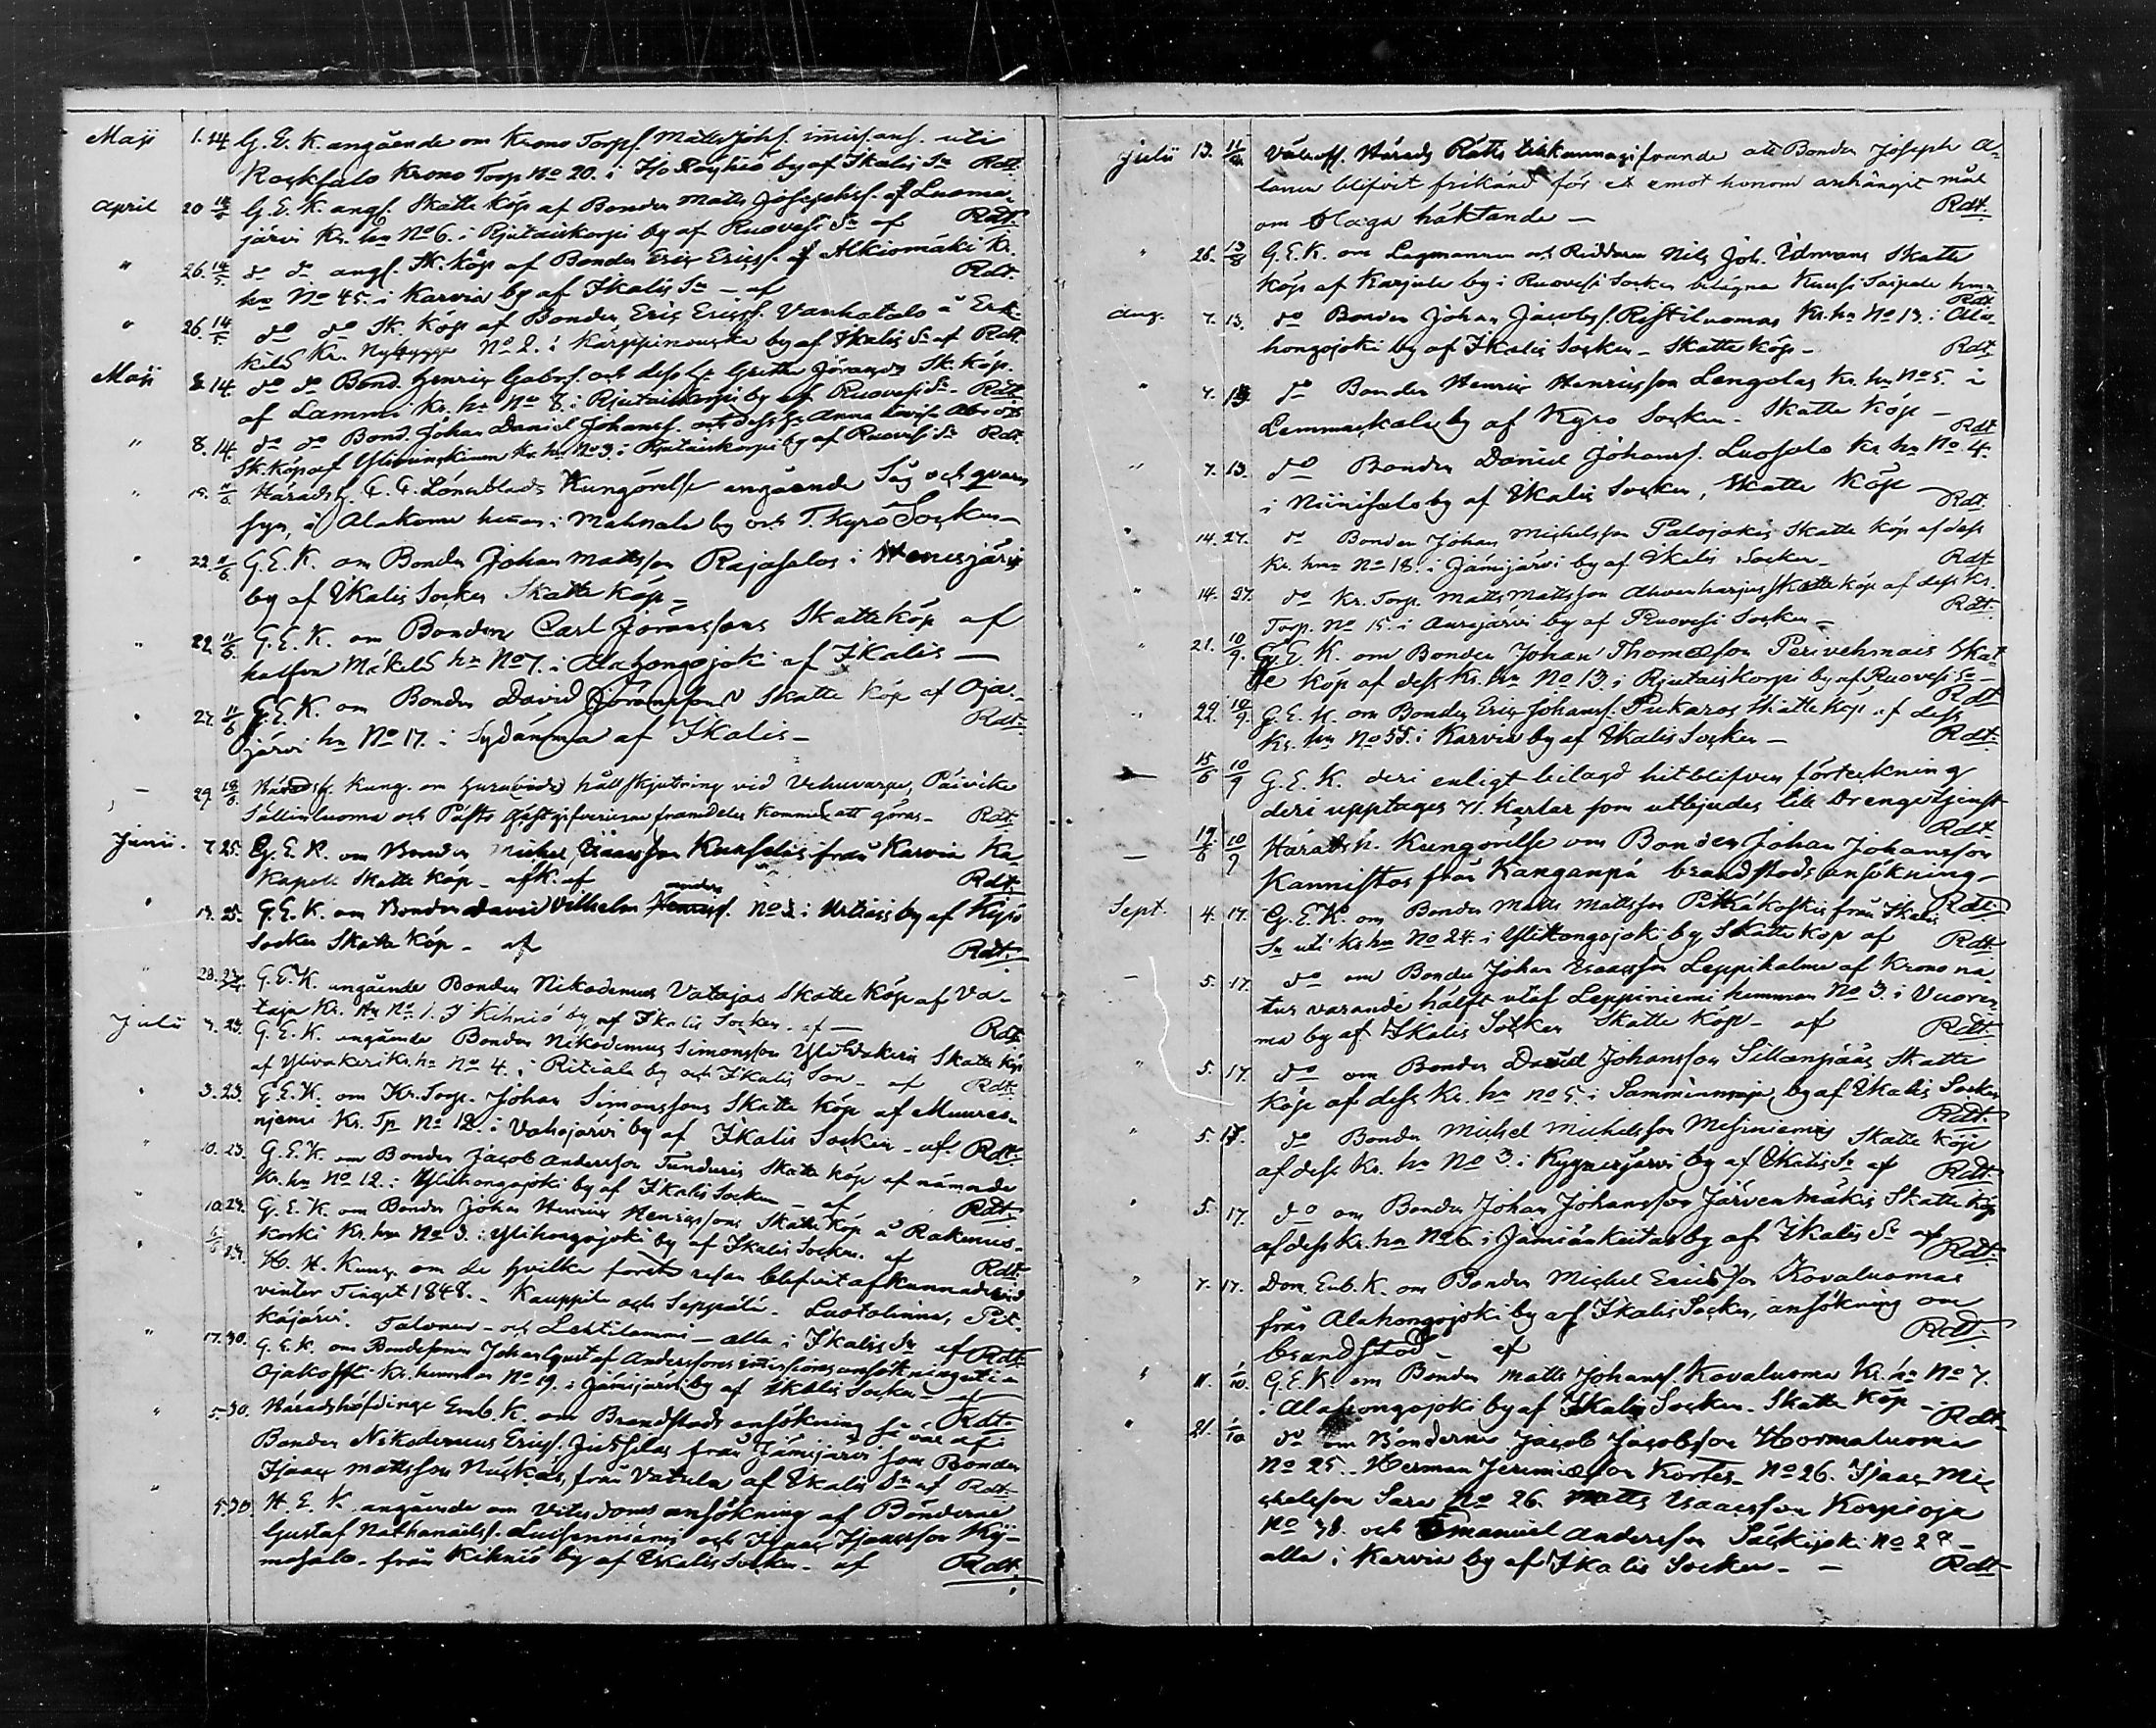 Maji 1. 14. G. E. K. angående om Krono Torpf. Matts Johsf. imissans. uti
Koskfalo Krono Torp No 20. i by af Ikalis Sn Rdt.
April 20 14/5 G. E. K. angf. Skatte köp af Bonden Matts Josephsf. af Luoma-
järvi Kr. hn No 6. i Pjutaiskorpi by af Ruovesi Sn af Rdt.
" 26. 14/5 do do angf. Sk. köp af Bonden Eric Ericsf. af Alkiomäki Kr.
hn No 45. i Karvia by af Ikalis Sn – af Rdt.
" 26. 14/5 do do Sk. köp af Bonden Eric Ericsf. Vanhatalo å Erk-
kilä Kr. Nybygge No 2. i Kärppinouska by af Ikalis Sn af Rdt.
Maji 8. 14. do do Bond. Henric Gabrsf. och dess h. Greta Göransdr Sk. köp.
af Lammi Kr. hn No 8. i Pjutaiskorpi by af Ruovesi Sn – Rdt.
" 8. 14. do do Bond. Johan Daniel Johansf. och dess h. Anna Lovisa Abr dr
Sk. köp af Kr. hn No 3. i Pjutaiskorpi by af Ruovesi Sn Rdt.
" 15. 11/6 Häradsh. C. G. Lönnblads Kungörelse angående Såg och qvarn
syn, å Alakome heman i Mahnala by och T. Kyrö Socken –
" 22. 11/6 G. E. K. om Bonden Johan Mattsson Rajasalos i Wenesjärvi
by af Ikalis Socken Skatte köp –
" 22. 11/6 G. E. K. om Bonden Carl Göranssons Skatteköp af
halfva Mäkelä hn No 7. i Alahongojoki af Ikalis –
" 27. 11/6 G. E. K. om Bonden David Göransson Skatte köp af Oja-
järvi hn No 17. i Sydänmaa af Ikalis – Rdt.
" 29 18/6 Häradsf. Kung. om huruvida hållskjutsning vid Vehuvarpe, Päivike
Sällinluoma och Påsto gästgifverierne framdeles kommer att göras – Rdt.
Junii. 7 25. G. E. K. om Bonden Michel Isaacsson Kunsalas från Karvia Ka-
kapell Skatte köp – afk. af Rdt.
" 19. 25. G. E. K. om Bonden David Vilhelm anders Henricsf. No 2 i by af Kyrö
Socken Skatte köp – af Rdt.
" 28. 23/7 G. E. K. angående Bonden Nikodemus Vatajas Skatte köp af Va-
taja Kr. hn No 1. I Kihniö by af Ikalis Socken – af – Rdt.
Julii 3. 23. G. E. K. angående Bonden Nikodemus Simonsson Ylivakeris Skatte köp
af Ylivakeri Kr. hn No 4. i Ritiala by och Ikalis Sn – af Rdt.
" 3. 23. G. E. K. om Kr. Torp. Johan Simonssons Skatte köp af Muures-
njemi Kr. Tp No 12. i Vahojärvi by af Ikalis Socken – af Rdt.
" 10. 23. G. E. K. om Bonden Jacob Andersson Tunduris Skatte köp af nämnde
Kr. hn No 12. i Ylihongojoki by af Ikalis Socken – af Rdt.
" 10. 23. G. E. K. om Bonden Johan Henric Henricssons Skatte köp å Rakenus-
koski Kr. hn No 3. i Ylihongojoki by af Ikalis Socken. af Rdt.
" 23. H. H. Kung. om de hvilka första resan blifvit afkunnade vid
vinter Tinget 1848. – Kauppila och Seppälä – Luotolinna, Pit-
käjärvi. Talonen – och Lehtilammi – alla i Ikalis Sn af Rdt.
" 17. 30. G. E. K. om Bondesonen Johan Gustaf Anderssons imissions ansökning uti
Ojakoski Kr. hemman No 19. i Jämijärvi by af Ikalis Socken – af
" 5. 30. Häradshöfdinge Emb. K. om Brandstods ansökning för af Rdt.
Bonden Nikodemus Ericsf. från Jämijärvi som Bonden
" Isaac Mattsson från Vatula af Ikalis Sn af Rdt.
5. 30. H. E. K. angående om Vitesdoms ansökning af Bönderne
Gustaf Nathanaelsf. Luisenniemi och Isaac Isaacsson My-
mosalo – från Kihniö by af Ikalis Socken – af Rdt.
Julii 13. Härads Rätts tillkännagifvande att Bonden Joseph A-
lanen blifvit frikänd för et emot honom anhängit mål
om olaga häktande – Rdt.
" 26. 13/8 G. E. K. om Lagmannen och Riddaren Nils Joh. Idmans Skatte
köp af Karjula by i Ruovesi Socken belägna Kuusi Taipale hmn
Aug. 7. 13. do Bonden Johan Jacobsf. Ristiluomas Kr. hn No 13. i Ala- Rdt.
hongojoki by af Ikalis Socken – Skatte köp – Rdt.
" 7. 13. do Bonden Henric Henricsson Lengolas Kr. hn No 5. i
Lemmackala by af Kyro Socken – Skatte köp – Rdt.
" 7. 13. do Bonden Daniel Johansf. Luosalo Kr. hn No 4.
i Niinisalo by af Ikalis Socken, Skatte köp Rdt.
" 14. 27. do Bonden Johan Michelsson Palojokis Skatte köp af dess
Kr. hmn No 18. i Jämijärvi by af Ikalis Socken – Rdt.
" 14. 27. do Kr. Torp. Matts Mattsson Ahvenharjus Skatte köp af dess Kr.
Torp. No 15. i Aurejärvi by af Ruovesi Socken – Rdt.
" 21. 10/9. G. E. K. om Bonden Johan Thomasson Perivehmais Skat-
te köp af dess Kr. hn No 13. i Pjutaiskorpi by af Ruovesi Sn – Rdt
" 22 10/9. G. E. K. om Bonden Eric Johansf. Pukaras Skatte köp af dess
Kr. hn No 55. i Karvia by af Ikalis Socken – Rdt.
15/6 10/9 G. E. K. deri enligt bilagd hitblifven förteckning
deri upptages 71. karlar som utbjudes till Drengetjenst Rdt.
– 19/6 10/9 Härads h. Kungörelse om Bonden Johan Johansson
Kannistos från Kanganpä brandstods ansökning – Rdt.
Sept. 4. 17. G. E. K. om Bonden Matts Mattsson Pitkäkoskis från Ikalis
Sn uti Kr hn No 24. i Ylihongojoki by Skatte köp af Rdt.
– 5. 17. do om Bonden Johan Isaacsson Leppihalme af Krono na-
tur varande hälft utaf Leppiniemi hemman No 3. i Vuoren-
ma by af Ikalis Socken Skatte köp – af Rdt.
" 5. 17. do om Bonden David Johansson Sillanpääs Skatte
köp af dess Kr. hn No 5. i by af Ikalis Socken Rdt.
" 5. 17. do Bonden Michel Michelsson Mesiniemis Skatte köp
af dess Kr. hn No 3. i Kyynerjärvi by af Ikalis Sn af Rdt.
" 5. 17. do om Bonden Johan Johansson Järvenmäkis Skatte köp
af dess Kr. hn No 6. i Jämiänkeitas by af Ikalis Sn af Rdt.
" 7. 17. Dom. Emb. K. om Bonden Michel Ericsson Kovaluomas
från Alahongojoki by af Ikalis Socken, ansökning om
brandstod – af Rdt.
" 11. 1/10. G. E. K. om Bonden Matts Johansf. Kovaluoma Kr. hn No 7.
i Alahongojoki by af Ikalis Socken – Skatte köp – Rdt.
" 21. 1/10 do om Bönderne Jacob Jacobsson Hormaluoma
No 25. – Herman Jeremiasson Kortes – No 26. Isaac Mi-
chelsson Sara No 26. Matts Isaacsson Korpioja
No 48. och Emanuel Andersson Säckijoki No 29 –
alla i Karvia by af Ikalis Socken – – Rdt